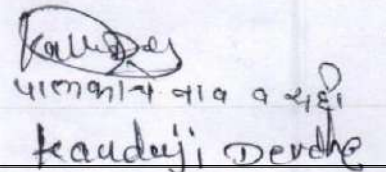 पालकाचे नाव व सही
Kanduji Derdhe